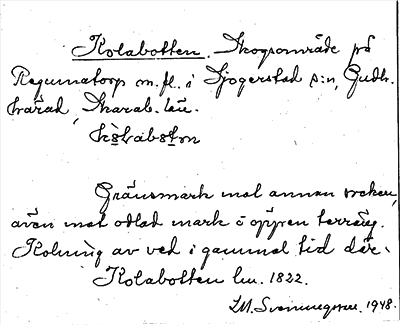 Kolabotten. Skogsområde på
Regumatorp m. fl. i Sjogerstad s:n, Gudh.
härad, Skarab. län.
Gränsmark mot annan socken,
även mot odlad mark i öppen terräng.
Kolning av ved i gammal tid där.
Kolabotten lm. 1822.
1948.